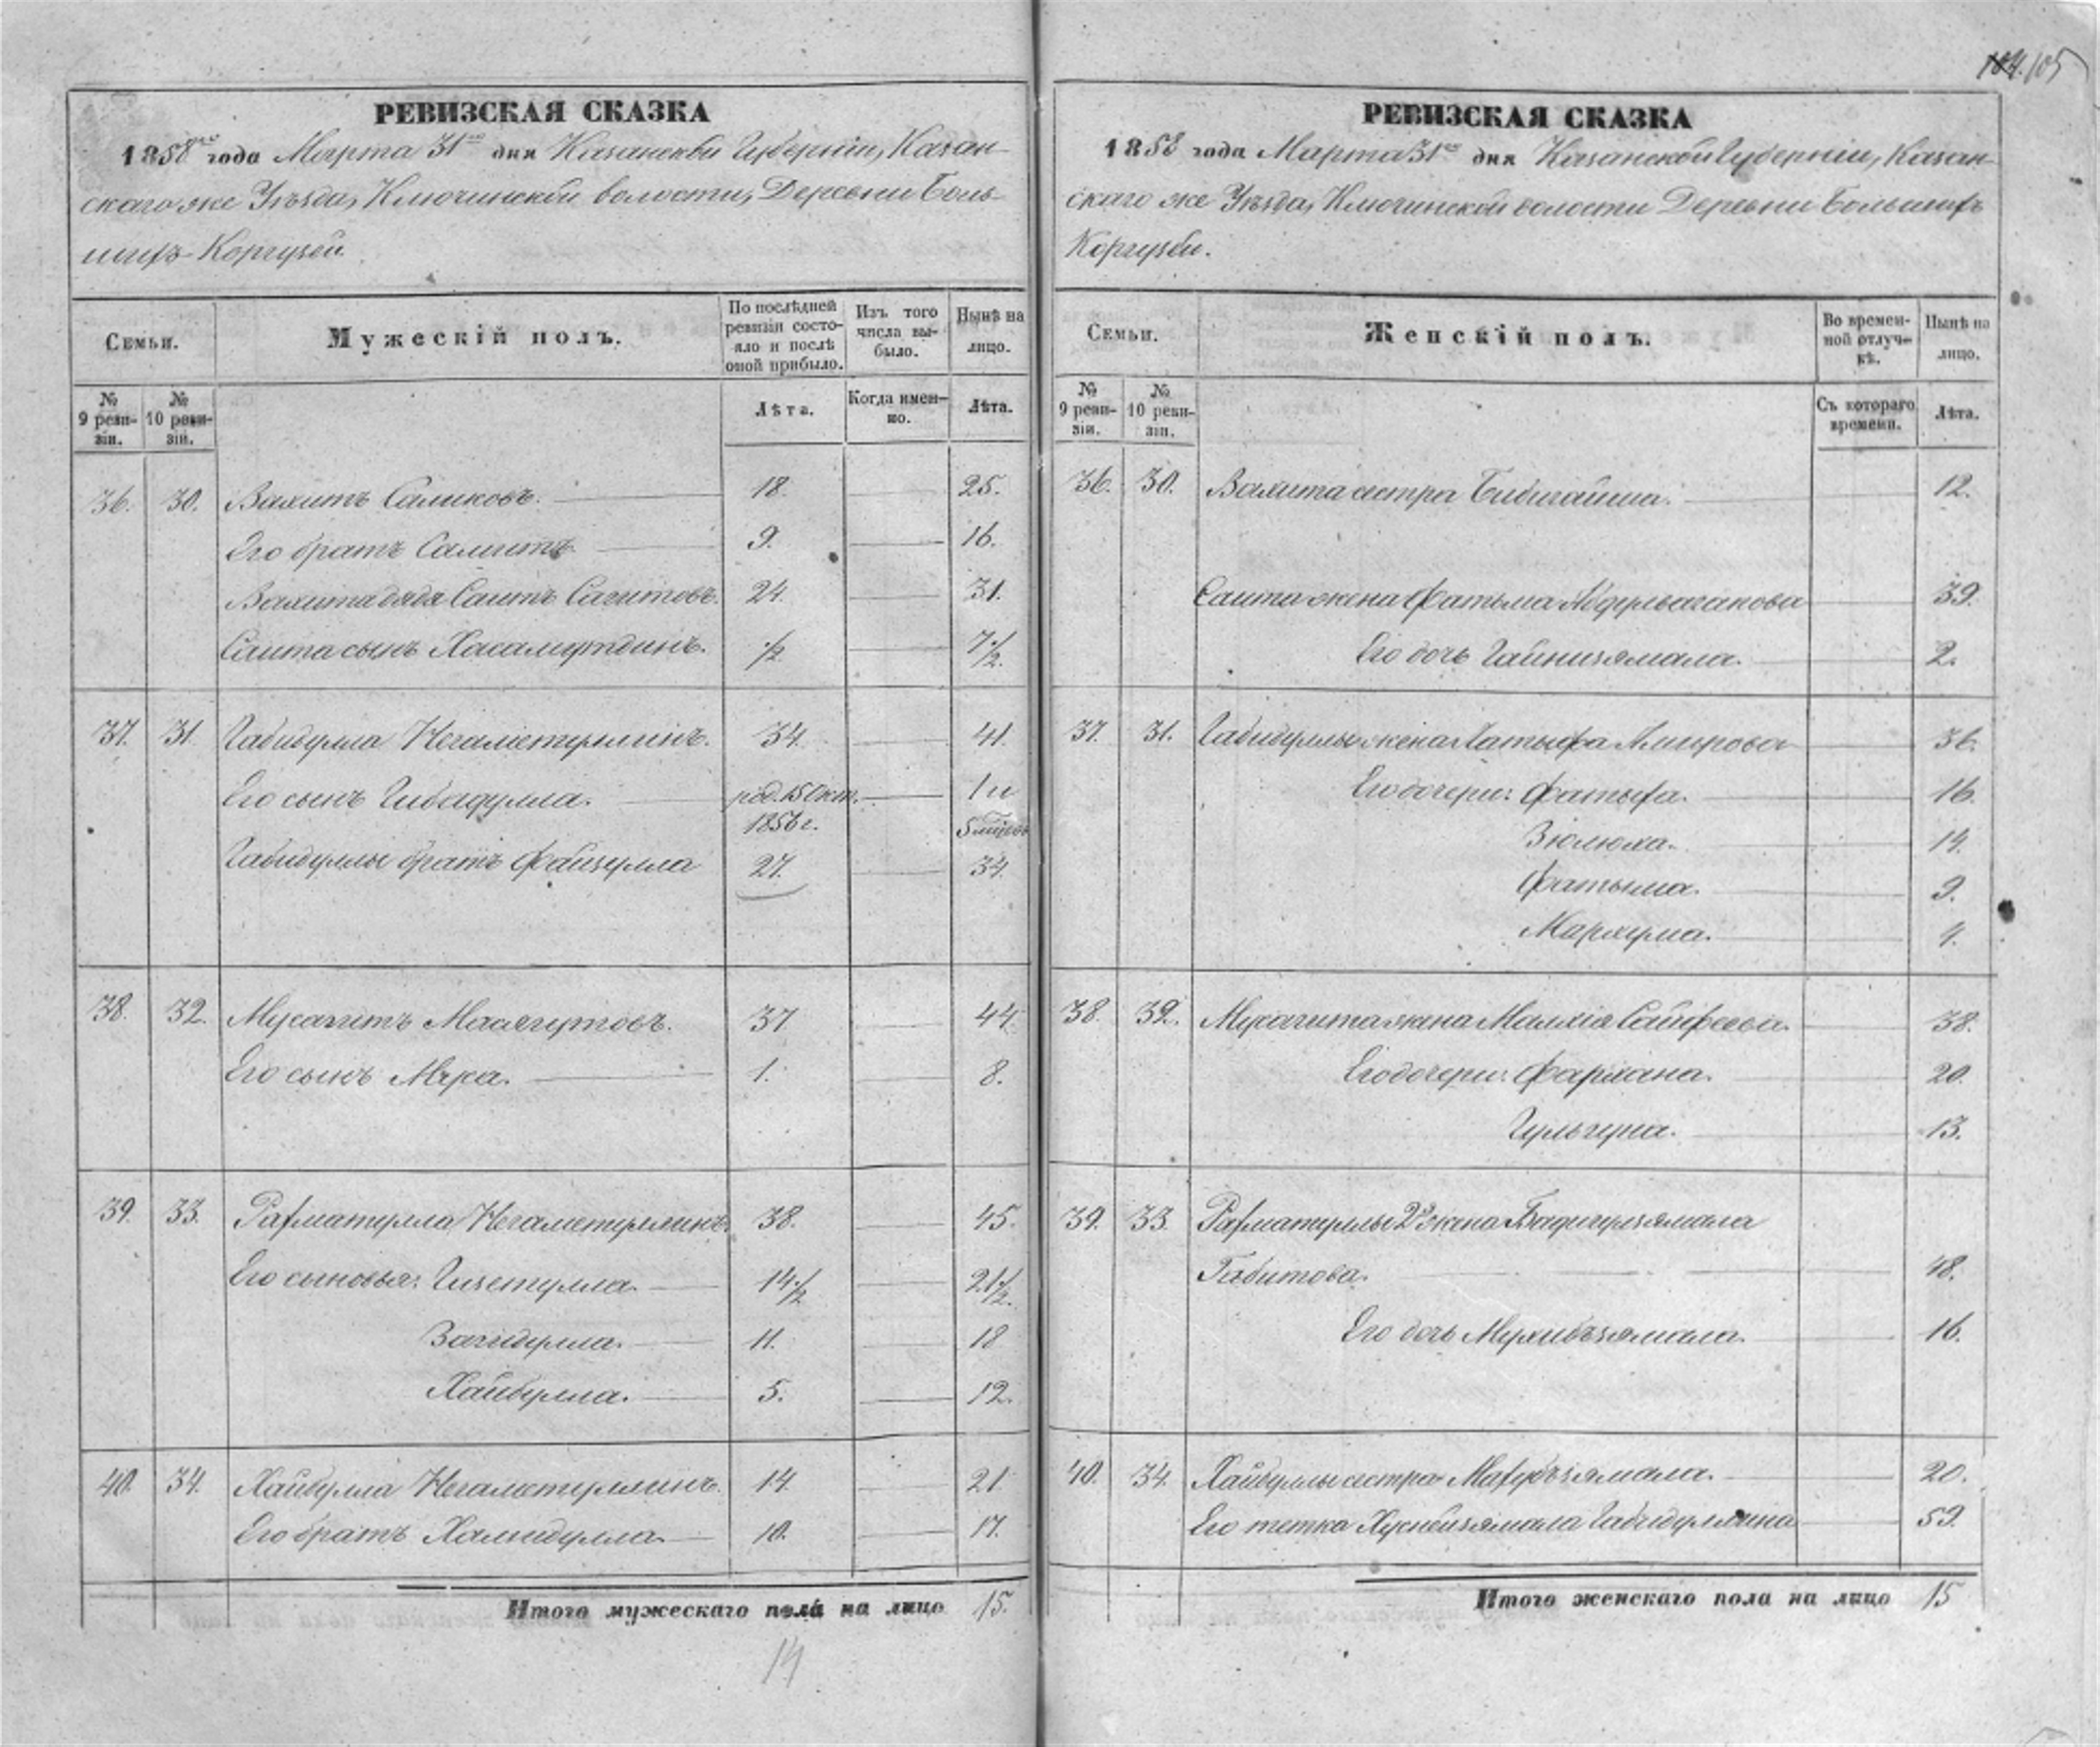 105
РЕВИЗСКАЯ СКАЗКА
1858го года Марта 31го дня Казанской Губерніи, Казан-
скаго же Уѣзда, Ключинской волости, Деревни Боль-
шихъ Коргузей.
Семьи.
Мужескій полъ.
По послѣдней ревизіи состо-
яло и послѣ оной прибыло.
Изъ того числа вы-
было.
Нынѣ на лицо.
№ 9 реви-
зіи.
№ 10 реви-
зіи.
Лѣта.
Когда имен-
но.
Лѣта.
36. 30. Вахитъ Салиховъ. 18. 25.
Его братъ Самитъ. 9. 16.
Вахита дядя Саитъ Сагитовъ. 24. 31.
Саита сынъ Хасамутдинъ. 1/2 7 1/2.
37. 31. Габидулла Негаметуллинъ. 34. 41.
Его сынъ Гибадулла. род. 15 Окт. 1 и
1856 г. 5 мѣсяц.
Габидуллы братъ Файзулла 27. 34.
38. 32. Мусагитъ Масягутовъ. 37 44.
Его сынъ Муса. 1. 8.
39. 33. Рахматулла Негаметуллинъ. 38. 45.
Его сыновья: Гизетулла. 14 1/2 21 1/2.
Загидулла. 11. 18
Хайбулла. 5. 12.
40. 34. Хайбулла Негаметуллинъ. 14. 21
Его братъ Хамидулла. 10. 17.
Итого мужескаго пола на лицо 15.
14
РЕВИЗСКАЯ СКАЗКА
1858 года Марта 31го дня Казанской Губерніи, Казан-
скаго же Уѣзда, Ключинской волости Деревни Большихъ
Коргузей.
Семьи.
Женскій полъ.
Во времен-
ной отлуч-
кѣ.
Нынѣ на лицо.
№ 9 реви-
зіи.
№ 10 реви-
зіи.
Съ котораго времени.
Лѣта.
36. 30. Вахита сестра Бибигайша. 12.
Саита жена Фатьма Абдулвагапова 39.
Его дочь Гайнизямала. 2.
37. 31. Габидуллы жена Латыфа Амирова 36.
Его дочери: Фатыха. 16.
Зюлюха. 14.
Фатыма. 9.
Мархума. 4.
38. 32. Мусагита жена Сайфеева. 38.
Его дочери: Фархана. 20.
13.
39. 33. Рахматуллы 2я жена Бадигулзямала
Габитова. 48.
Его дочь Мухибъзямала. 16.
40. 34. Хайбуллы сестра Махубъзямала. 20.
Его тетка Хуснебизямала Габидуллина 59.
Итого женскаго пола на лицо 15